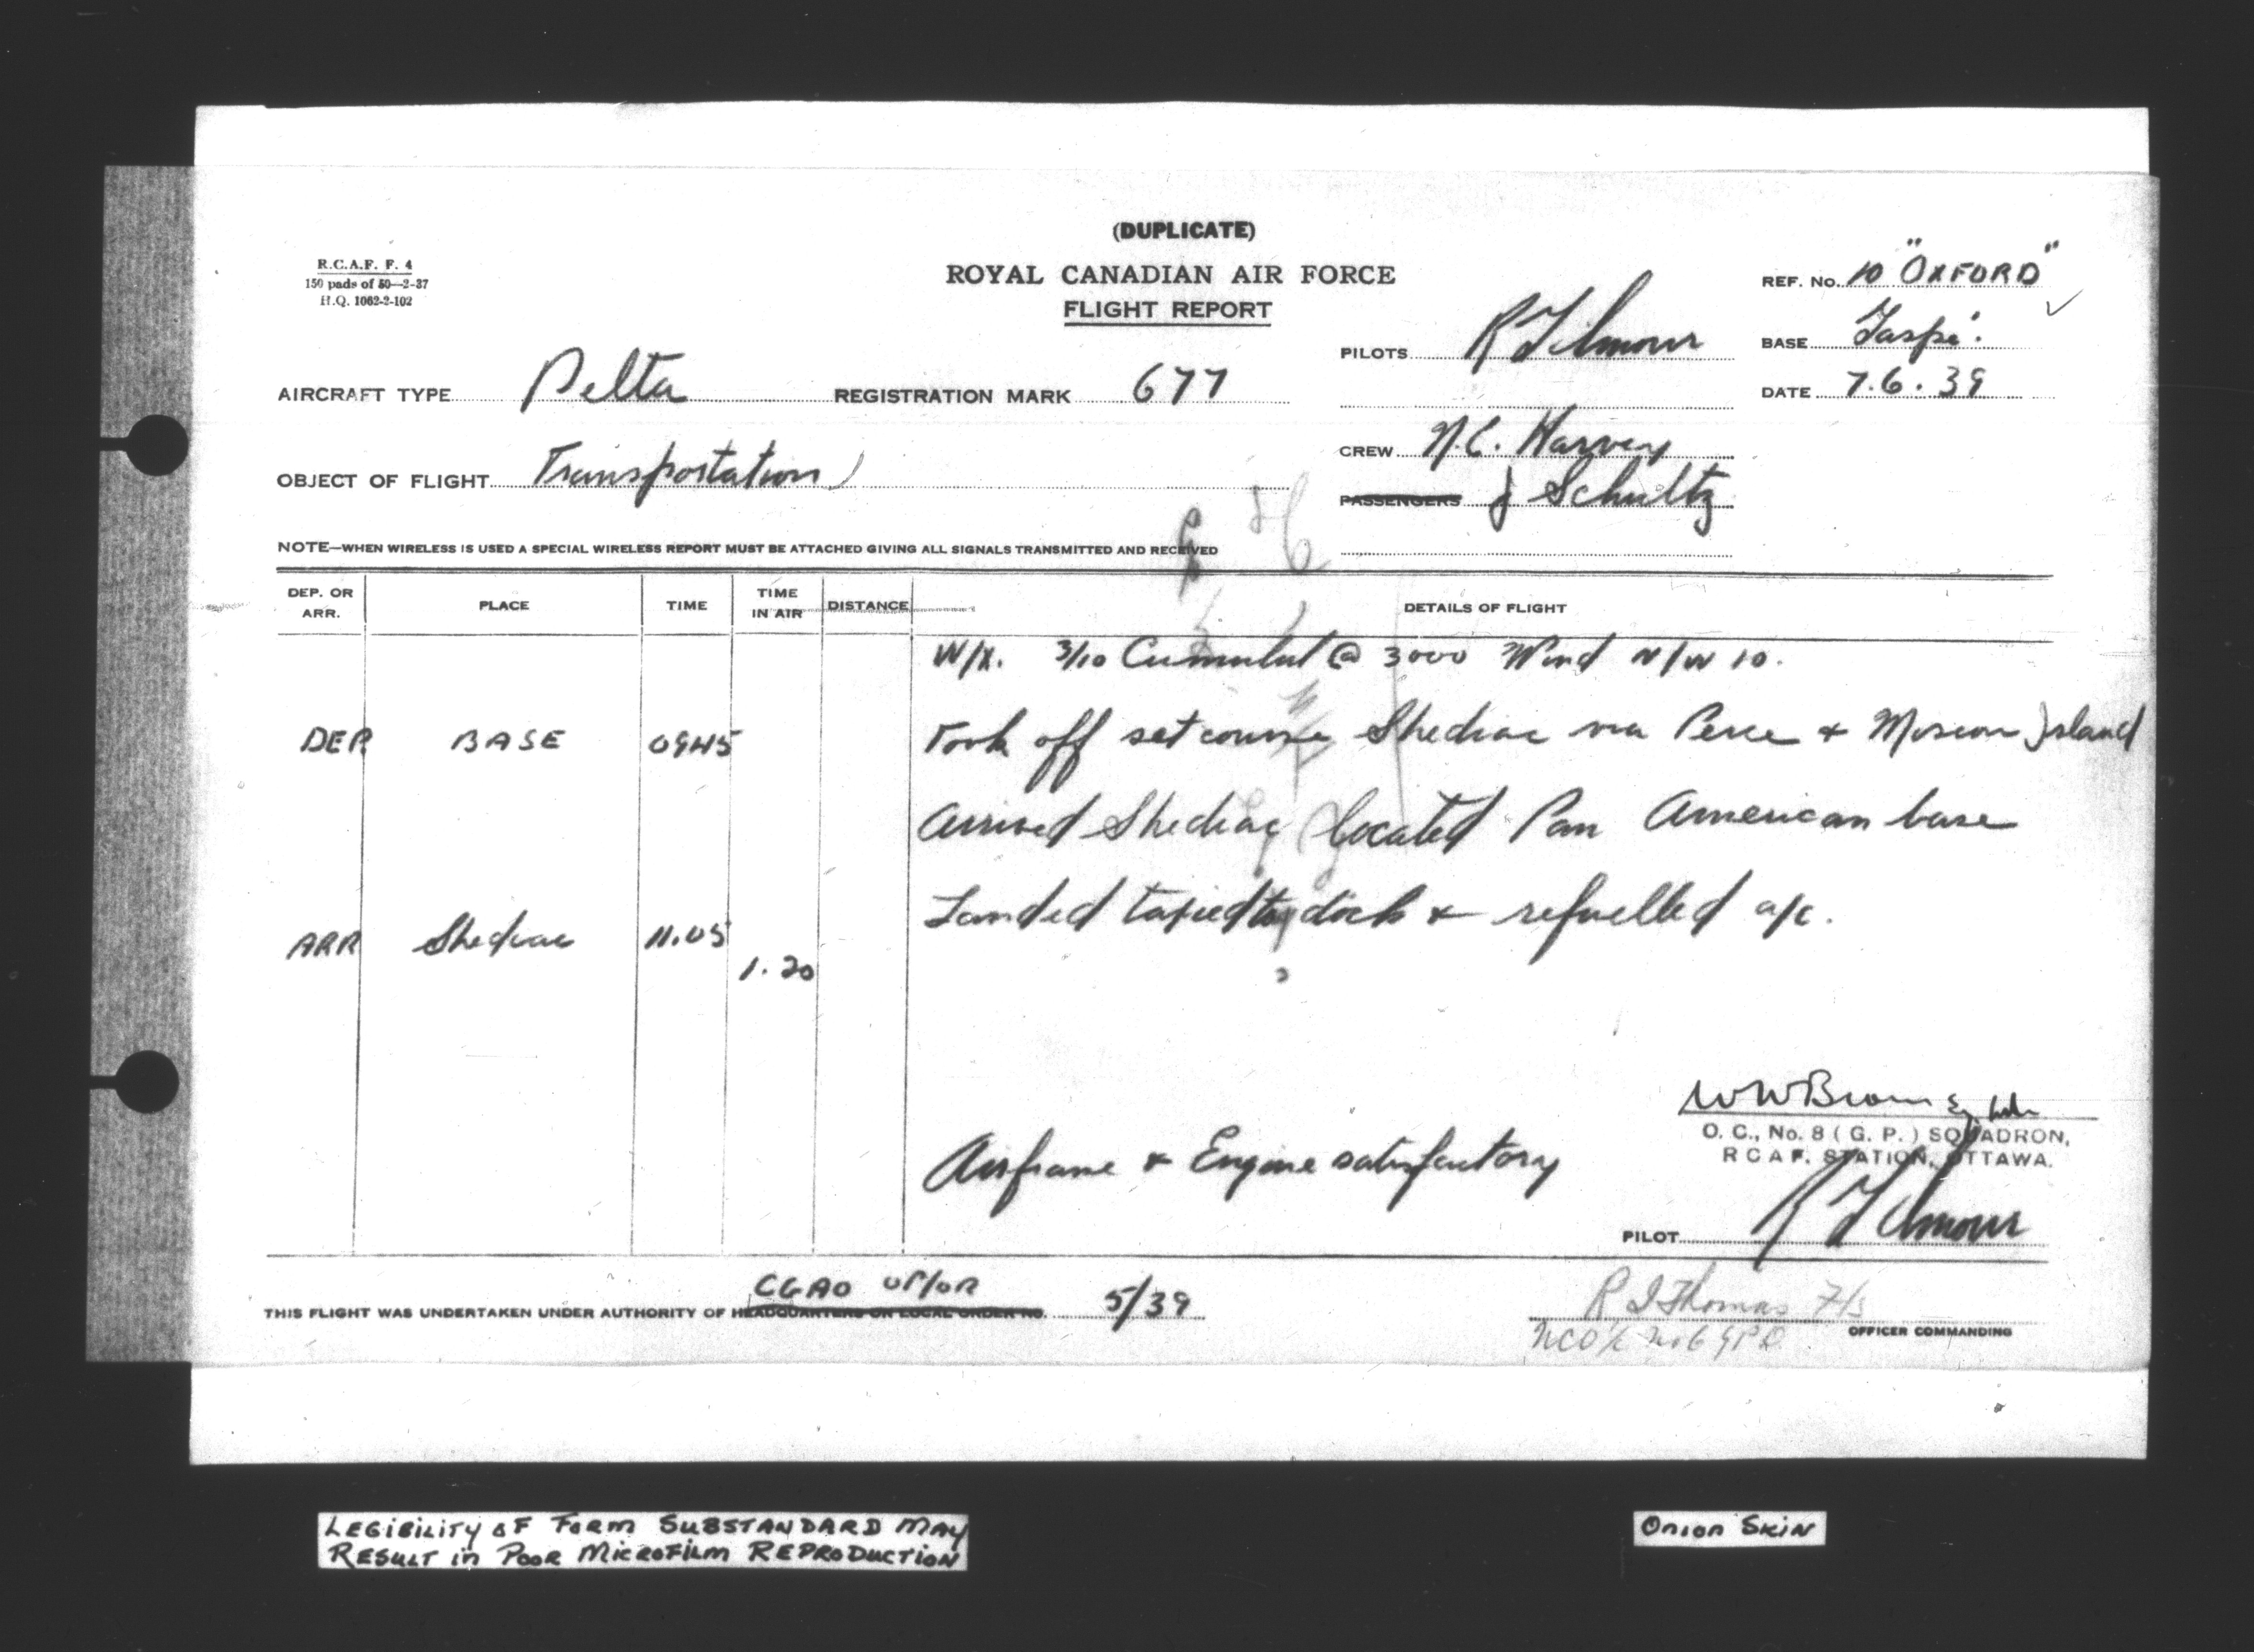 (DUPLICATE)
R.C.A.F. F. 4
150 pads of 50—2-37
H.Q. 1062-2-102
ROYAL CANADIAN AIR FORCE
FLIGHT REPORT
REF. No. 10 "OXFORD"
PILOTS R Gilmour
BASE Gaspé.
AIRCRAFT TYPE Delta REGISTRATION MARK 677
DATE 7.6.39
CREW N.C. Harvey
OBJECT OF FLIGHT Transportation
PASSENGERS J Schultz
NOTE—WHEN WIRELESS IS USED A SPECIAL WIRELESS REPORT MUST BE ATTACHED GIVING ALL SIGNALS TRANSMITTED AND RECEIVED
DEP. OR ARR. PLACE TIME TIME IN AIR DISTANCE DETAILS OF FLIGHT
W/X. 3/10 Cumulus @ 3000 Wind N/W 10.
DEP BASE 0945 Took off set course Shediac via Perce & Miscou Island
Arrived Shediac located Pan American base
Landed taxied to dock & refuelled a/c.
ARR Shediac 11.05
1.20
WWBrown
O. C., No. 8 ( G. P. ) SQUADRON,
R C A F. STATION, OTTAWA.
Airframe & Engine satisfactory
PILOT R Gilmour
CGAO OP/OR
THIS FLIGHT WAS UNDERTAKEN UNDER AUTHORITY OF HEADQUARTERS OR LOCAL ORDER NO. 5/39
R I Thomas F/S
OFFICER COMMANDING
LEGIBILITY OF FORM SUBSTANDARD MAY
RESULT in POOR MICROFILM REPRODUCTION
Onion SKIN